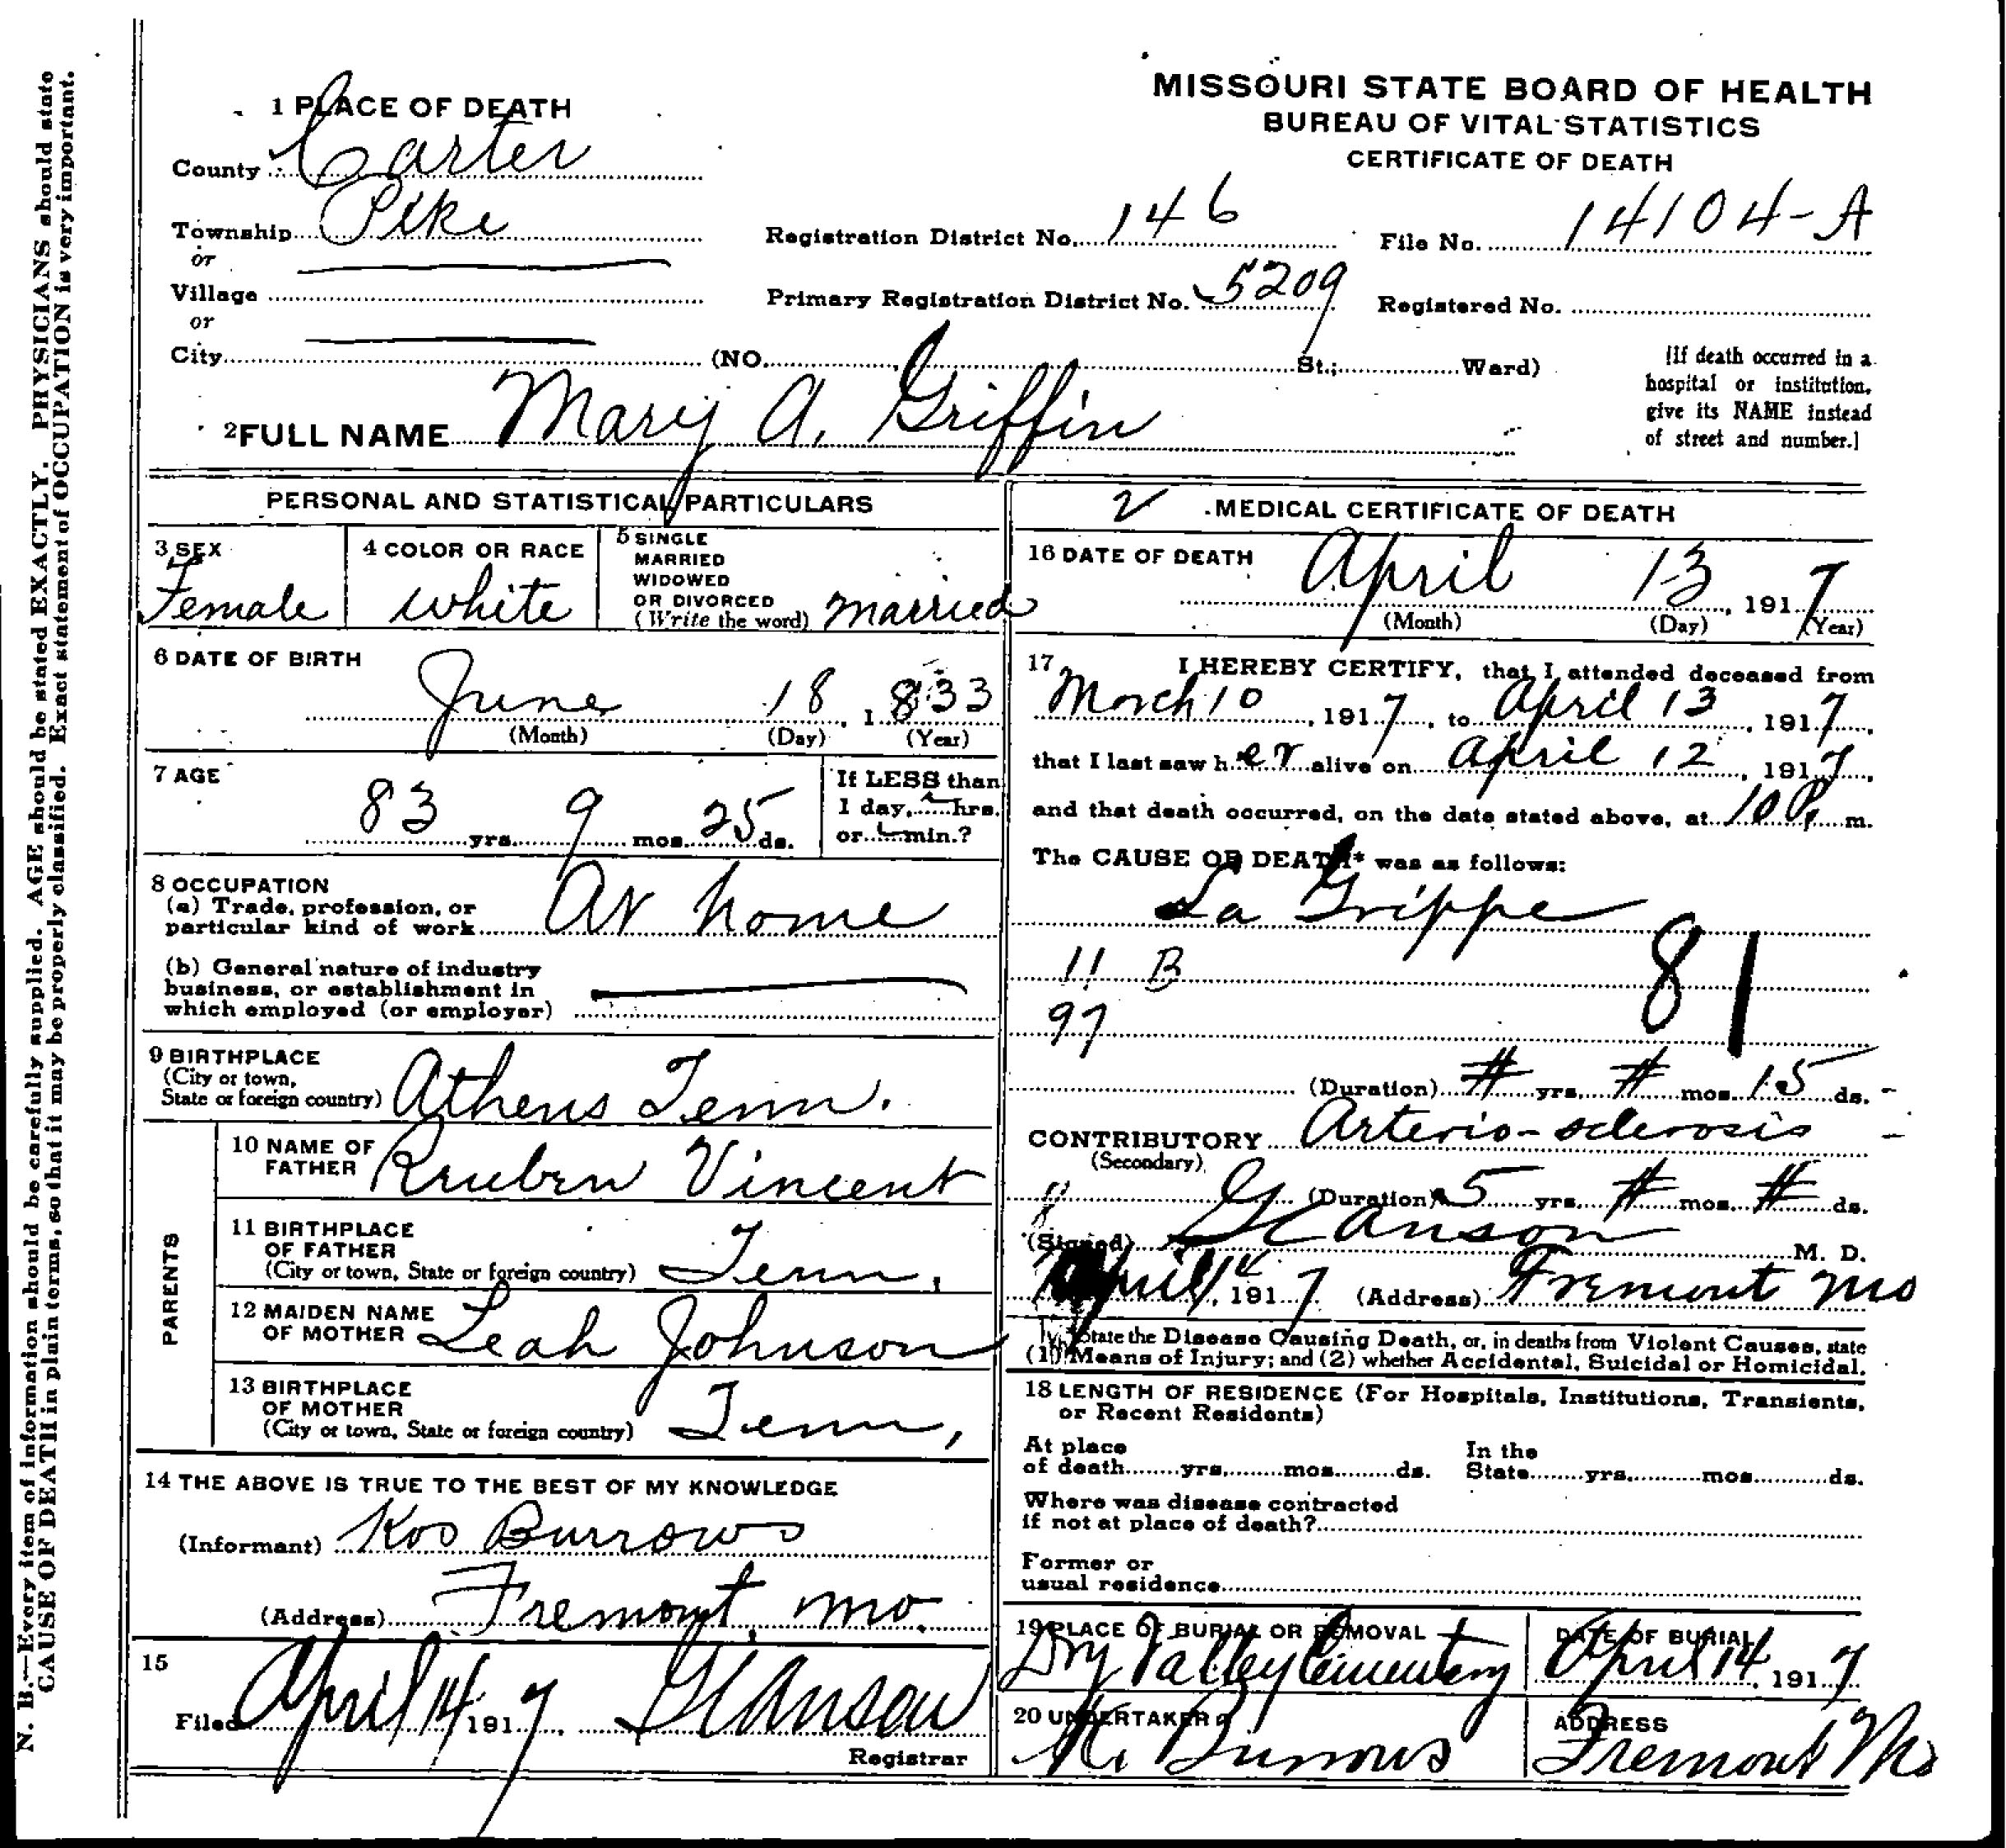 N. B.—Every item of information should be carefully supplied. AGE should be stated EXACTLY. PHYSICIANS should state
CAUSE OF DEATH in plain terms, so that it may be properly classified. Exact statement of OCCUPATION is very important.
MISSOURI STATE BOARD OF HEALTH
BUREAU OF VITAL STATISTICS
CERTIFICATE OF DEATH
1 PLACE OF DEATH
County Carter
Township Pike
or
Village
or
City (NO. St.; Ward)
Registration District No. 146
File No. 14104-A
Primary Registration District No. 5209
Registered No.
[If death occurred in a
hospital or institution,
give its NAME instead
of street and number.]
2 FULL NAME Mary A. Griffin
PERSONAL AND STATISTICAL PARTICULARS
3 SEX
Female
4 COLOR OR RACE
White
5 SINGLE
MARRIED
WIDOWED
OR DIVORCED
(Write the word) Married
6 DATE OF BIRTH
June 18, 1833
(Month) (Day) (Year)
7 AGE
83 yrs. 9 mos. 25 ds.
If LESS than
1 day, hrs.
or min.?
8 OCCUPATION
(a) Trade, profession, or
particular kind of work At home
(b) General nature of industry
business, or establishment in
which employed (or employer)
9 BIRTHPLACE
(City or town,
State or foreign country) Athens Tenn.
PARENTS
10 NAME OF
FATHER Reuben Vincent
11 BIRTHPLACE
OF FATHER
(City or town, State or foreign country) Tenn.
12 MAIDEN NAME
OF MOTHER Leah Johnson
13 BIRTHPLACE
OF MOTHER
(City or town, State or foreign country) Tenn,
14 THE ABOVE IS TRUE TO THE BEST OF MY KNOWLEDGE
(Informant) Kos Burrows
(Address) Fremont, Mo.
15
Filed April 14 1917, Registrar
2 MEDICAL CERTIFICATE OF DEATH
16 DATE OF DEATH
April 13, 1917
(Month) (Day) (Year)
17 I HEREBY CERTIFY, that I attended deceased from
March 10, 1917, to April 13, 1917,
that I last saw her alive on April 12, 1917,
and that death occurred, on the date stated above, at 10 P. m.
The CAUSE OF DEATH* was as follows:
La Grippe
11 B 81
97
(Duration) # yrs. # mos. 15 ds.
CONTRIBUTORY Arterio-sclerosis
(Secondary)
(Duration) 5 yrs. # mos. # ds.
(Signed) M. D.
April 14, 1917 (Address) Fremont Mo
*State the Disease Causing Death, or, in deaths from Violent Causes, state
(1) Means of Injury; and (2) whether Accidental, Suicidal or Homicidal.
18 LENGTH OF RESIDENCE (For Hospitals, Institutions, Transients,
or Recent Residents)
At place
of death yrs. mos. ds.
In the
State yrs. mos. ds.
Where was disease contracted
if not at place of death?
Former or
usual residence
19 PLACE OF BURIAL OR REMOVAL
Dry Valley Cementery
DATE OF BURIAL
April 14, 1917
20 UNDERTAKER
K. Burrows
ADDRESS
Fremont Mo